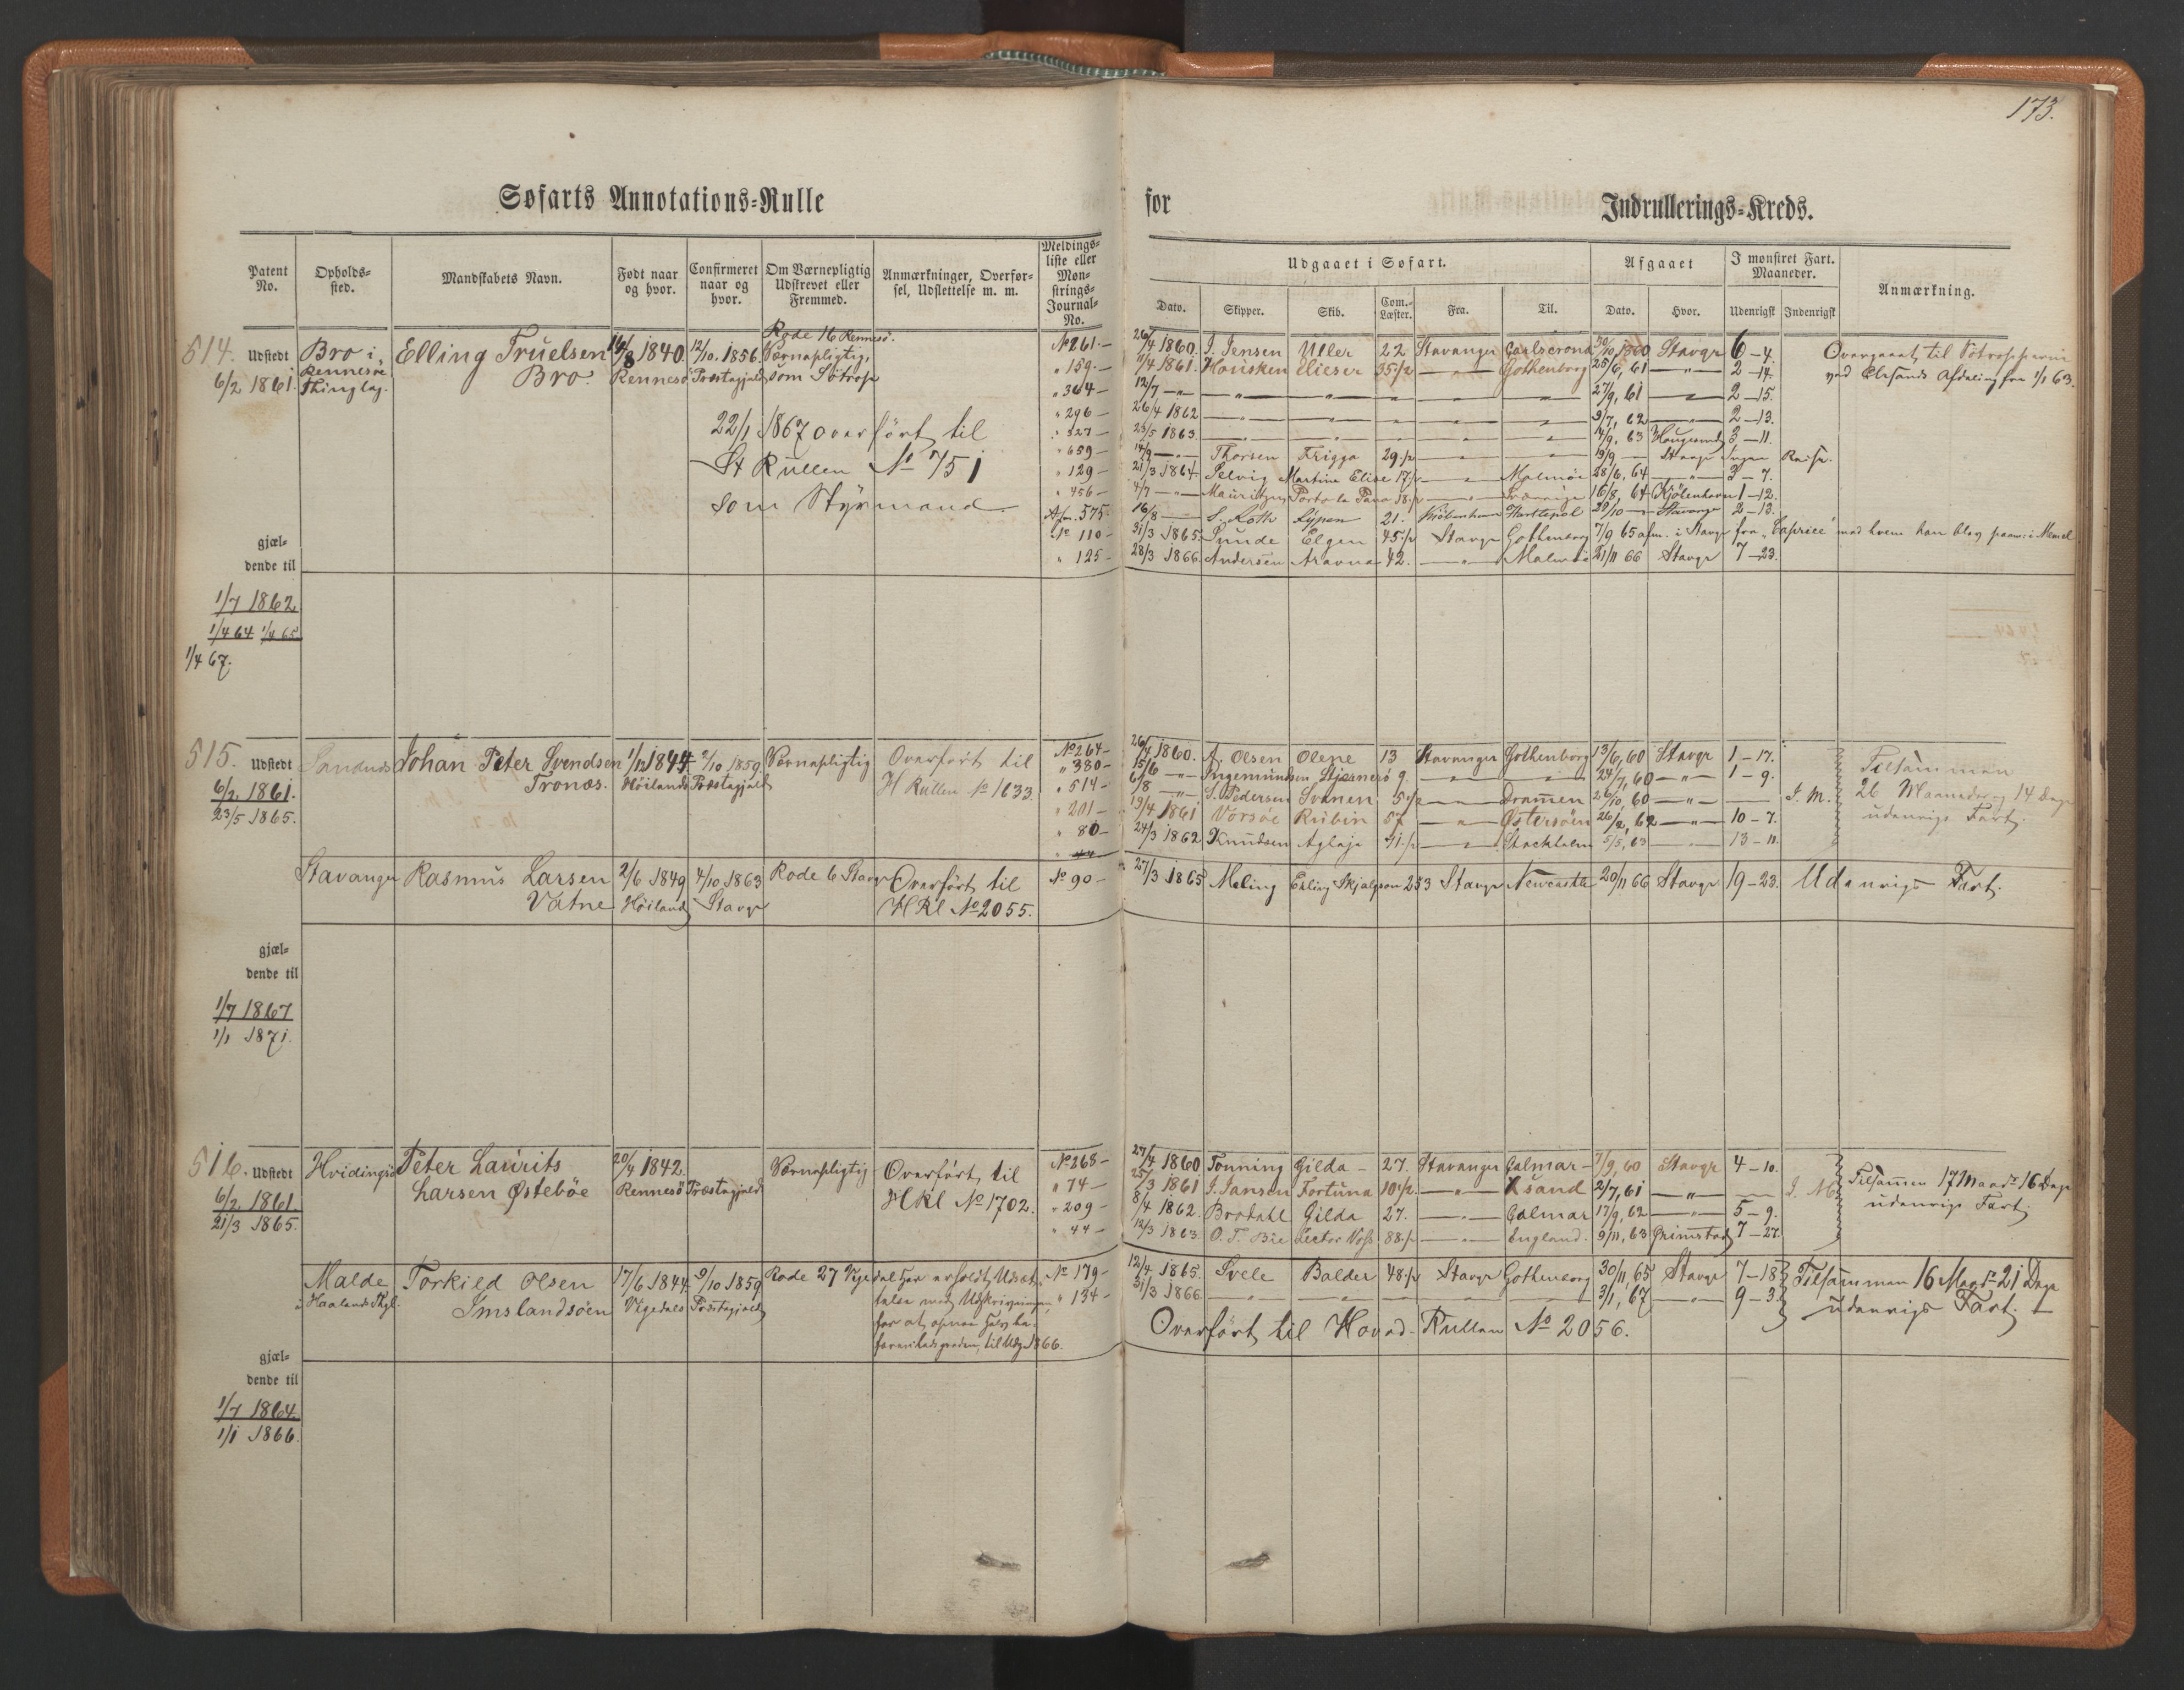 173.
Søfarts Annotations-Rulle for Indrullerings-Kreds.
Patent No. Opholds-sted. Mandskabets Navn. Født naar og hvor. Confirmeret naar og hvor. Om Værnepligtig Udskrevet eller Fremmed. Anmærkninger, Overførsel, Udslettelse m. m. Meldings-liste eller Mønstrings-Journal-No.
Udgaaet i Søfart. Afgaaet I mønstret Fart. Maaneder. Anmærkning.
Dato. Skipper. Skib. Com.-Læster. Fra. Til. Dato. Hvor. Udenrigst Indenrigst
514. Udstedt 6/2 1861.
Bro i Rennesøe Thinglag.
Elling Truelsen Bro.
14/8 1840. Rennesö
12/10. 1856. Præstegjeld
Rode 16 Rennesö. Værnepligtig, som Søtrop
22/1 1867 overført til
St Rullen No 751
som Styrmand.
No 261 - 26/4 1860. J. Jensen Uller 22 Stavanger Carlscrona 30/10 1860 Stavgr 6-4. Overgaaet til Søtropperne
" 159 - 11/4 1861. Housken Elieser 35 1/2 - " - Gothenborg 25/6, 61 - " - 2-14. ved Chrsands Afdeling fra 1/1 63.
" 364 - 12/7 - " - - " - - " - - " - - " - - " - 27/9, 61 - " - 2-15.
" 296 - 26/4 1862 - - - - - 9/7, 62 - " - 2-13.
" 327 - 23/5 1863. - - - - - 14/9, 63 Haugesund 3-11.
" 659 - Thorsen Frigga 29 1/2 - " - - " - 19/9 - Stavgr Ingen Reise.
" 129 - 21/3 1864. Selvig Martine Elise 17 1/2 - " - Malmøe 28/6, 64 - " - 3-7.
" 456 - 4/7 - " - Mauritzen 18 1/2 - " - 16/8, 64 Kjöbenhavn 1-12.
Afm. 575 16/8 - S. Roth 21. Kiöbenhavn Hartlepol 28/10 - Stavanger 2-13.
No 110 - 31/3 1865. Tunde Elgen 45 1/2 Stavgr Gothenborg 7/9 65 afm. i Stavgr fra "Caprice" med hvem han blev paam: i Memel
" 125 - 28/3 1866. Andersen Aravna 42. - " - Malmö 21/11 66 Stavgr 7-23.
gjæl-
dende til
1/7 1862
1/4 64 1/4 65.
1/4 67.
515. Udstedt 6/2 1861. 23/5 1865.
Sandnæs
Johan Peter Svendsen Tronæs.
1/12 1844 Höilands
2/10 1859 Præstegjeld
Værnepligtig
Overført til H Rullen No 1633.
No 264 - 26/4 1860. A. Olsen Olene 13 Stavanger Gothenborg 13/6, 60 Stavgr 1-17. Tilsammen
" 380 - 15/6 - " - Ingemundsen Stjernerö 9. - " - - " - 24/7, 60 - " - 1-9. 26 Maaneder og 14 Dage
" 514 - 6/8 - " - S. Pedersen Svanen 5 1/2 - " - Drammen 26/10, 60 - " - - I. M. udenrigs Fart.
" 201 - 19/4 1861 Vorsøe Rubin 57 - " - Østersöen 26/2, 62 - " - 10-7.
" 80 - 24/3 1862 Knudsen Aglaja 41 1/2 - " - Stockholm 5/5, 63 - 13-11.
" 44
Stavanger Rasmus Larsen Vatne
2/6 1849 Höiland
4/10 1863 Stavgr
Rode 6 Stavgr
Overført til H Rl No 2055.
No 90 - 27/3 1865 Meling Erling Skjalgson 253 Stavgr Newcastle 20/11 66 Stavgr 19-23. Udenrigs Fart.
gjæl-
dende til
1/7 1867
1/1 1871.
516. Udstedt 6/2 1861. 21/3 1865.
Hvidingsö
Peter Laurits Larsen Østebøe
20/4 1842. Rennesö Præstegjeld
Værnepligtig
Overført til H Rl No 1702.
No 268 - 27/4 1860 Tonning Gilda - 27. Stavanger Calmar - 7/9, 60 Stavgr 4-10.
" 74 - 25/3 1861 J. Jansen Fortuna 10 1/2. - " - X sand 2/7, 61 - " - - I. M. Tilsammen 17 Maadr 16 Dage
" 209 - 8/4 1862. Brodahl Gilda 27. - " - Calmar 17/9, 62 - " - 5-9. udenrigs Fart.
" 44 - 12/3 1863. O. T. Bie Rector Voss 88 1/2 - " - England. 9/11, 63 Grimstad 7-27.
Malde i Haalands Thgl.
Torkild Olsen Imslandsöen
17/6 1844. Vigedals
9/10 1859 Præstegjeld
Rode 27 Vigedal
Har erholdt Udsættelse med Udskrivningen for at opnaa til Udg. 1866.
No 179 - 12/4 1865. Svele Balder 48 1/2 Stavgr Gothenborg 30/11 65 Stavgr 7-18 Tilsammen 16 Maadr 21 Dage
" 134 - 31/3 1866 - " - - " - - " - - " - - " - 3/1, 67 - " - 9-3. udenrigs Fart.
Overført til Hoved-Rullen No 2056.
gjæl-
dende til
1/7 1864.
1/1 1866.